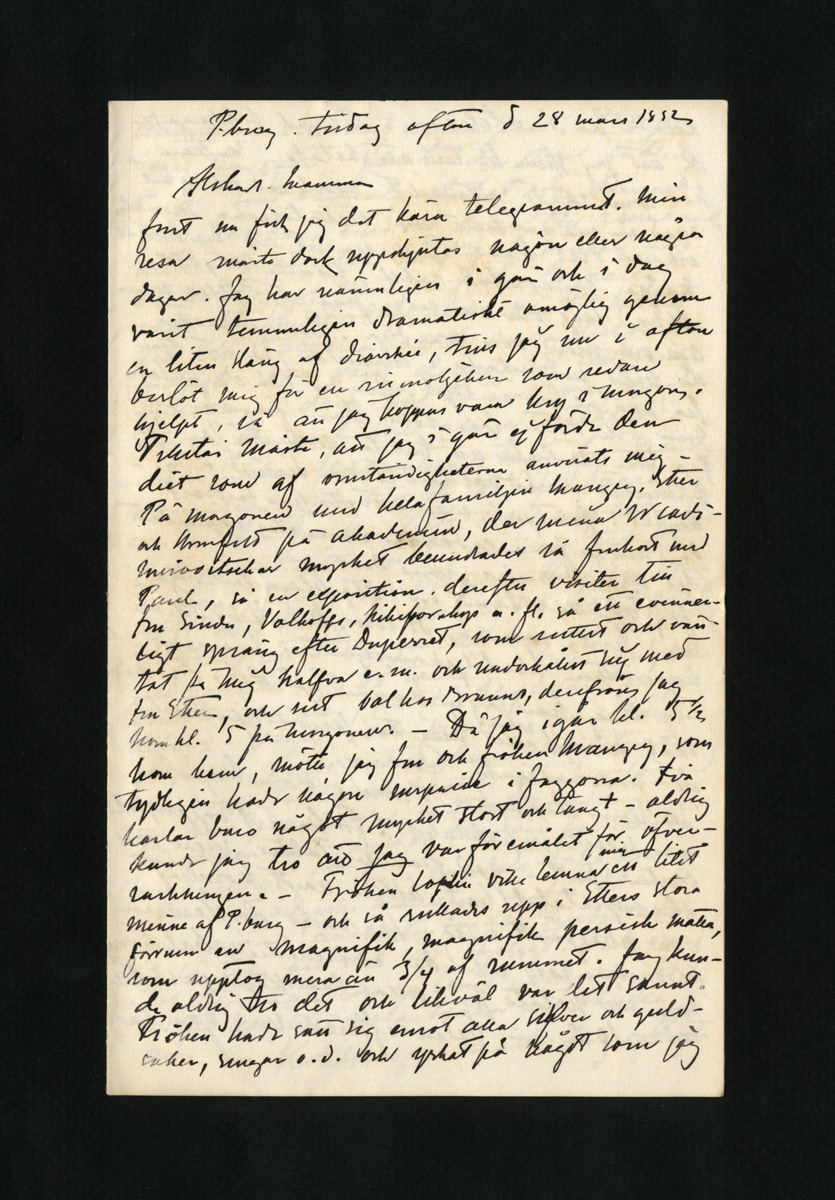 P.burg. tisdag afton d 28 mars 1882
Älskade Mamma
först nu fick jag det kära telegrammet. Min
resa måste dock uppskjutas någon eller några
dagar. Jag har nämnligen i går och i dag
varit temmeligen dramatiskt omöjlig genom
en liten släng af diarrhée, tills jag nu i afton
beslöt mig för en ricinoljekur som redan
hjelpt, så att jag hoppas vara kry i morgon.
måste, att jag i går ej förde den
diet som af omständigheterna anvisats mig –
På morgonen med hela familjen Mangey, Etter
och Armfelt på akademin, der mina
mycket beundrades så frukost med
Paul, så en exposition. derefter visiter till
fru Sinden, Valhoffs, Nikiforakys m. fl. så ett
ligt språng efter Duperret, som suttit och vän-
tat på mig halfva e.m. och underhållit sig med
fru Etter, och sist bal hos Brauns, derifrån jag
kom kl. 5 på morgonen. – Då jag igår kl. 5 ½
kom hem, mötte jag fru och fröken Mangey, som
tydligen hade någon surprise i faggorna. Två
karlar buro något mycket stort och tungt – aldrig
kunde jag tro att jag var föremålet för öfver-
raskningen. – Fröken Sophie ville lemna mig ett litet
minne af P.burg – och så rullades upp i Etters stora
förrum en magnifik, magnifik persisk matta,
som upptog mera än 3/4 af rummet. Jag kun-
de aldrig tro det och likväl var det sannt.
Fröken hade satt sig emot alla silfver och guld-
saker, ringar o.d. och yrkat på något som jag